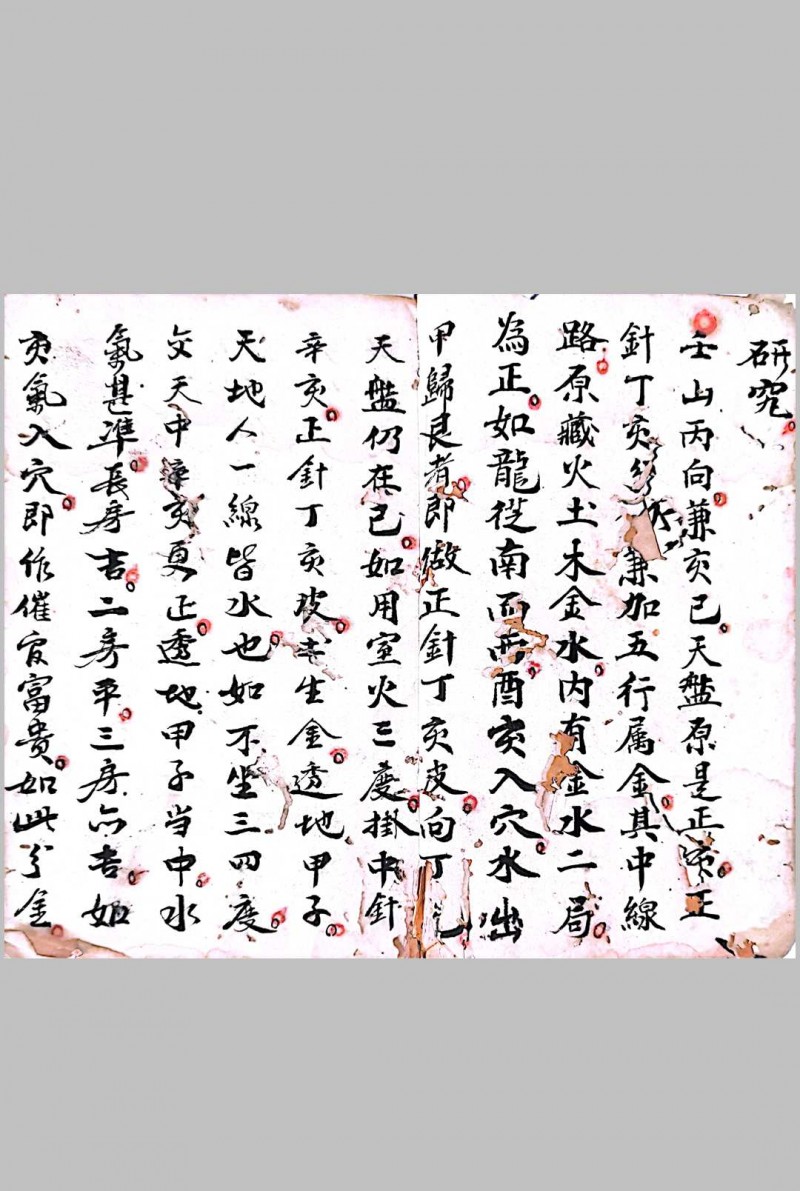 研究
壬山丙向兼亥巳天盤原是正亥正
針丁亥兼加五行属金其中線
路原藏火土木金水内有金水二局
為正如龍從南而酉亥入穴水出
甲歸艮者即做正針丁亥皮向丁
天盤仍在已如用室火三度掛中針
辛亥正針丁亥坡生金透地甲子
天地人一線皆水也如不坐三四度
文天中亥更正透地甲子当中水
氣甚準長房吉二房平三房亦吉如
亥氣入穴即作催官富貴如此分金